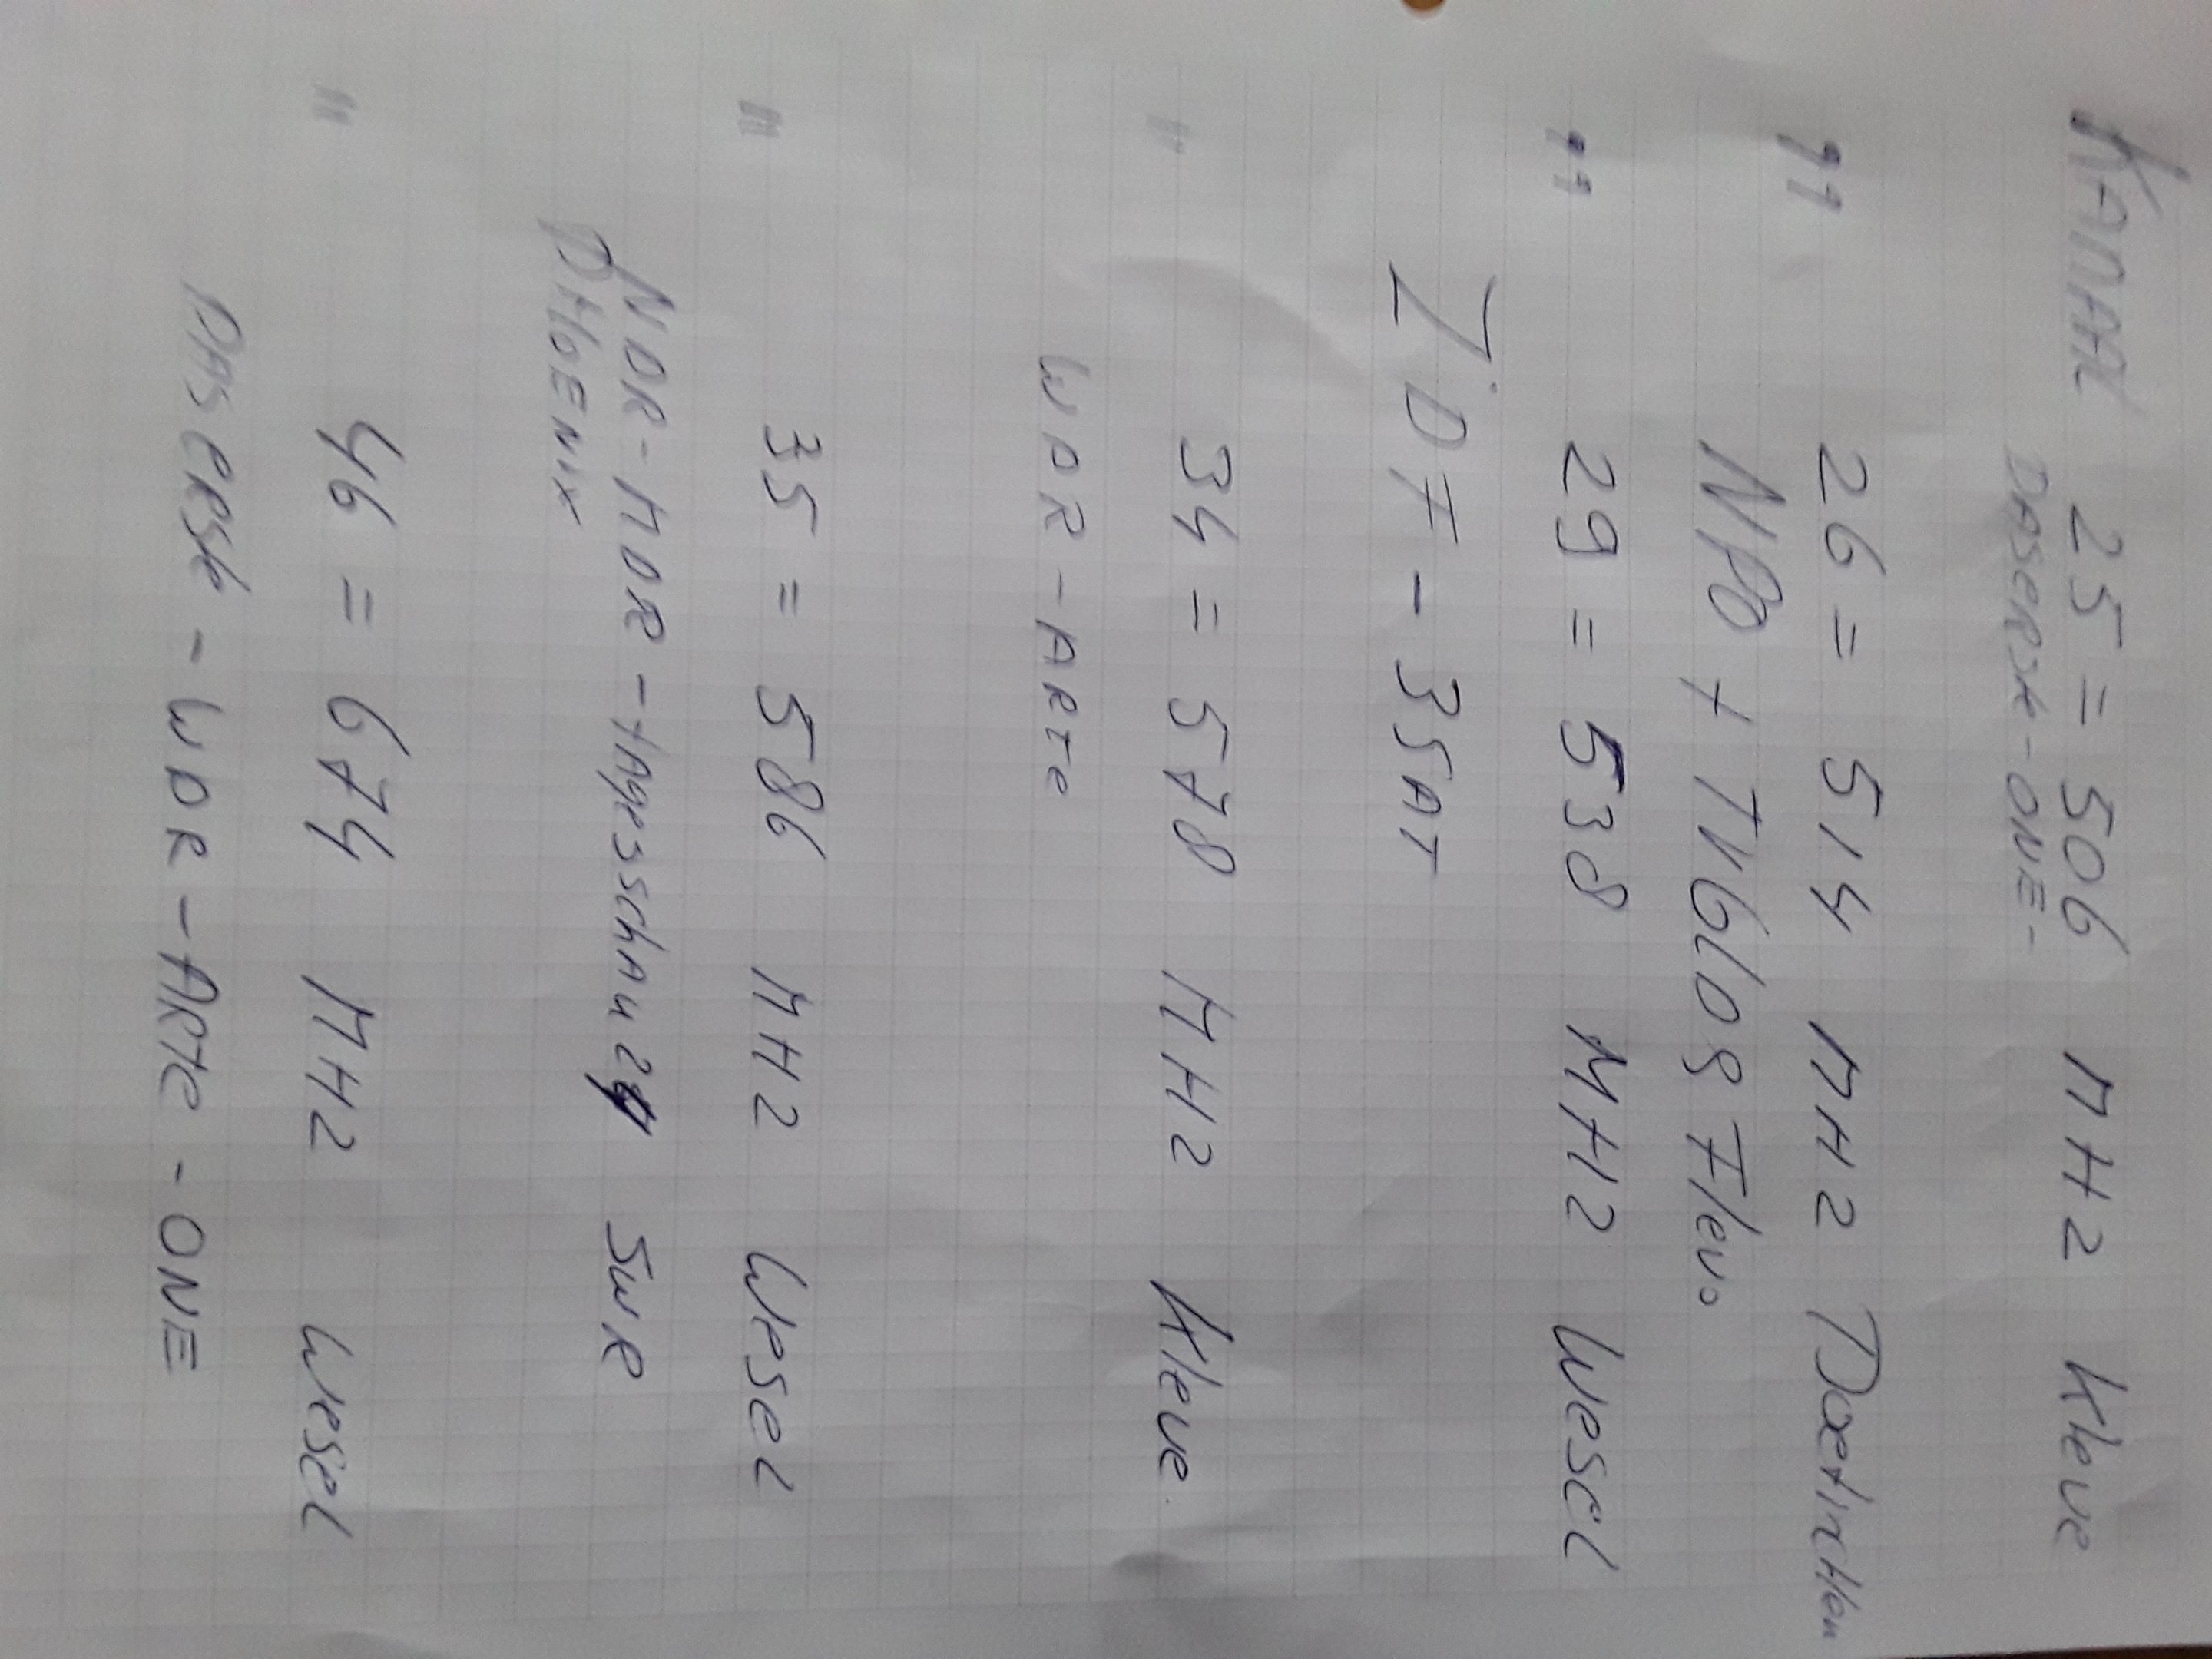 KANAAL 25 = 506 MHZ Kleve
DASERSte-ONE-
" 26 = 514 MHZ Doetinchem
NPO + TV Gld & Flevo
" 29 = 538 MHZ Wesel
ZDF - 3SAT
" 34 = 578 MHZ Kleve
WDR-ARTe
" 35 = 586 MHZ Wesel
NDR-MDR-tAgesschAu 24 SWR
PHOENIX
" 46 = 674 MHZ Wesel
DAS ERSte - WDR - ARte - ONE